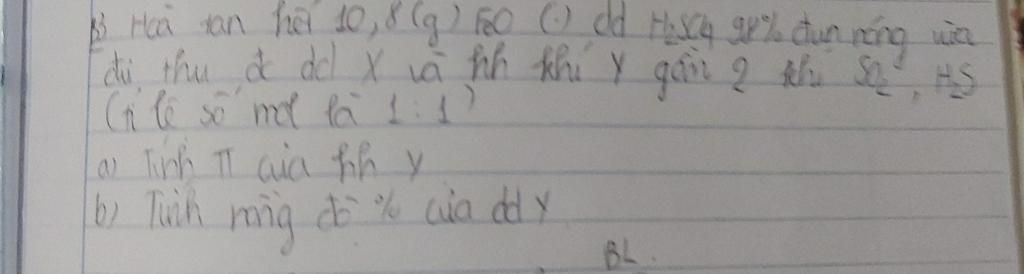 B3 Hoà tan hết 10,8 (g) FeO (.) dd H2SO4 98% đun nóng vừa
đủ thu đc dd X và hh khí Y gồm 2 khí SO2, H2S
(tỉ lệ số mol là 1:1)
a) Tính Π của hh Y
b) Tính nồng độ % của dd Y
BL.